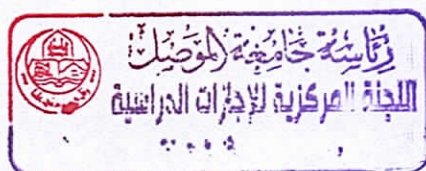 رئاسة جامعة الموصل
اللجنة المركزية للإجازات الدراسية